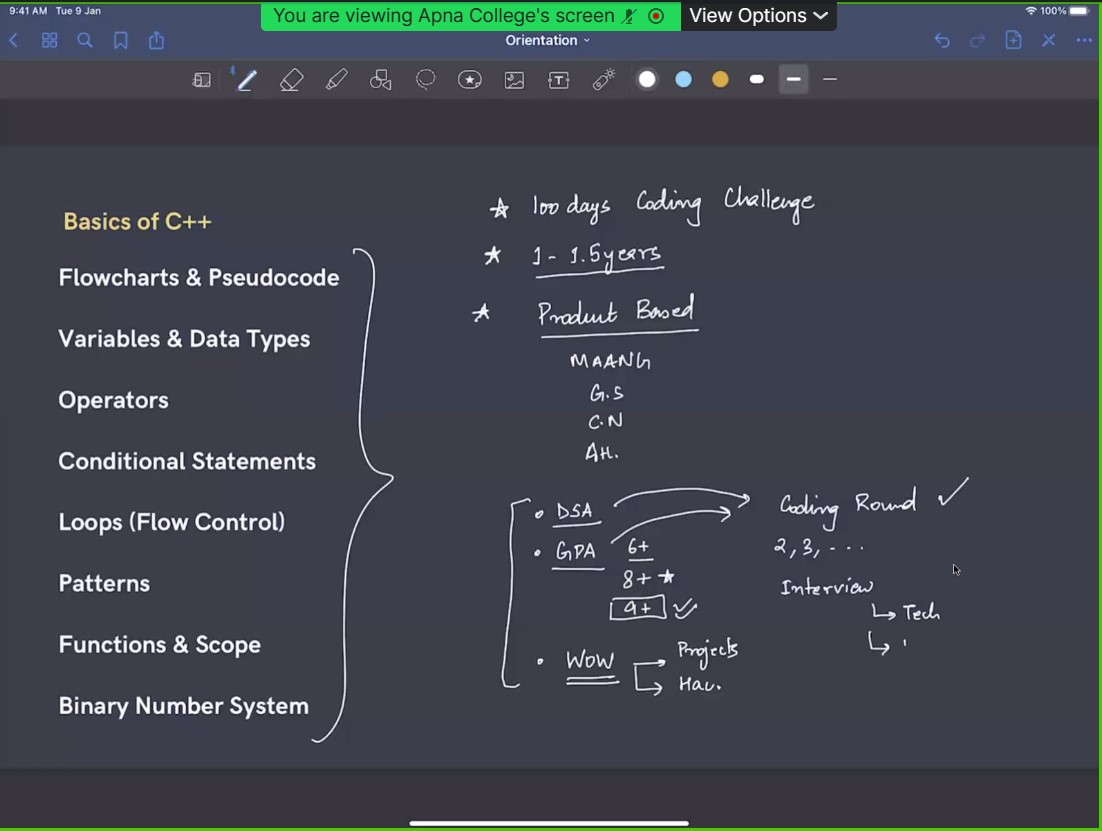 9:41 AM Tue 9 Jan
You are viewing Apna College's screen
View Options
100%
Orientation
Basics of C++
Flowcharts & Pseudocode
Variables & Data Types
Operators
Conditional Statements
Loops (Flow Control)
Patterns
Functions & Scope
Binary Number System
100 days Coding Challenge
1 - 1.5 years
Product Based
MAANG
G.S
C.N
AH.
DSA
GPA 6+
8+
9+
WOW
Projects
Hac.
Coding Round
2, 3, ...
Interview
Tech